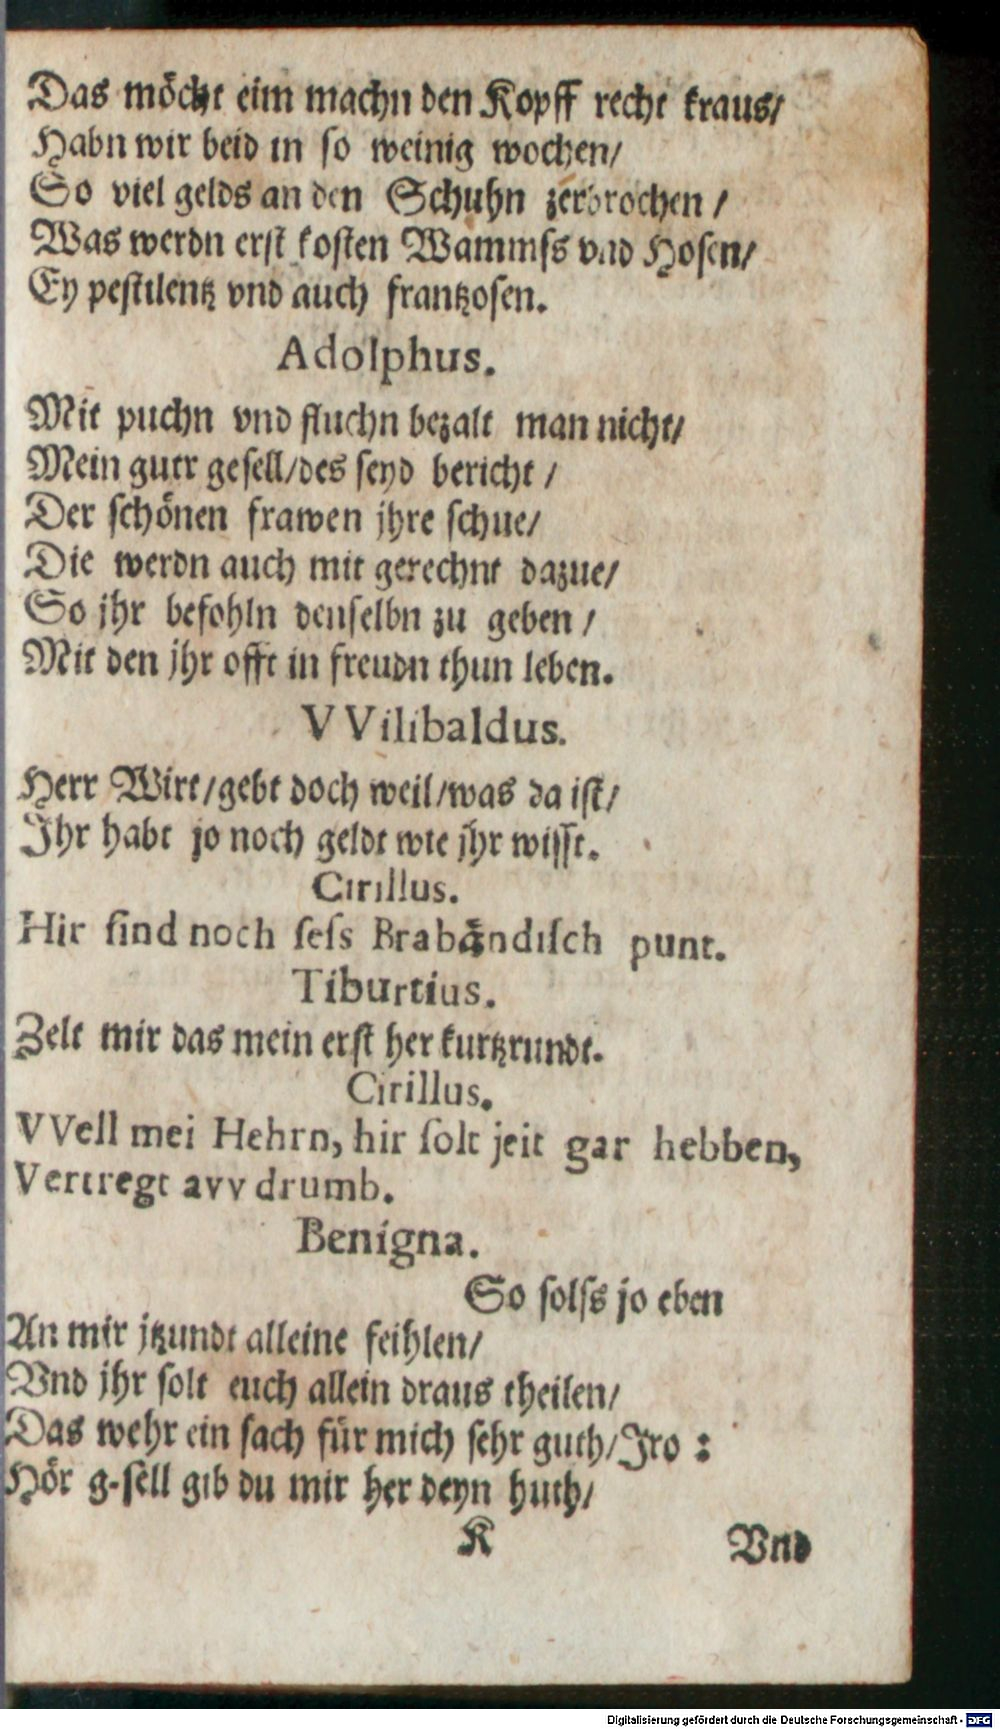 Das möcht eim machn den Kopff recht kraus/
Habn wir beid in so weinig wochen/
So viel gelds an den Schuhn zerbrochen /
Was werdn erst kosten Wammſs vnd Hosen/
Ey pestilentz vnd auch frantzosen.
Adolphus.
Mit puchn vnd fluchn bezalt man nicht/
Mein gutr gesell/des seyd bericht /
Der schönen frawen jhre schue/
Die werdn auch mit gerechnt dazue/
So jhr befohln denselbn zu geben /
Mit den jhr offt in freudn thun leben.
VVilibaldus.
Herr Wirt/gebt doch weil/was da ist/
Jhr habt jo noch geldt wie jhr wisst.
Cirillus.
Hir ſind noch ſeſs Brabändiſch punt.
Tiburtius.
Zelt mir das mein erst her kurtzrundt.
Cirillus.
VVell mei Hehrn, hir ſolt jeit gar hebben,
Vertregt avv drumb.
Benigna.
So solſs jo eben
An mir jtzundt alleine feihlen/
Vnd jhr solt euch allein draus theilen/
Das wehr ein sach für mich sehr guth/Jro :
Hör g-sell gib du mir her deyn huth/
K Vnd
Digitalisierung gefördert durch die Deutsche Forschungsgemeinschaft - DFG